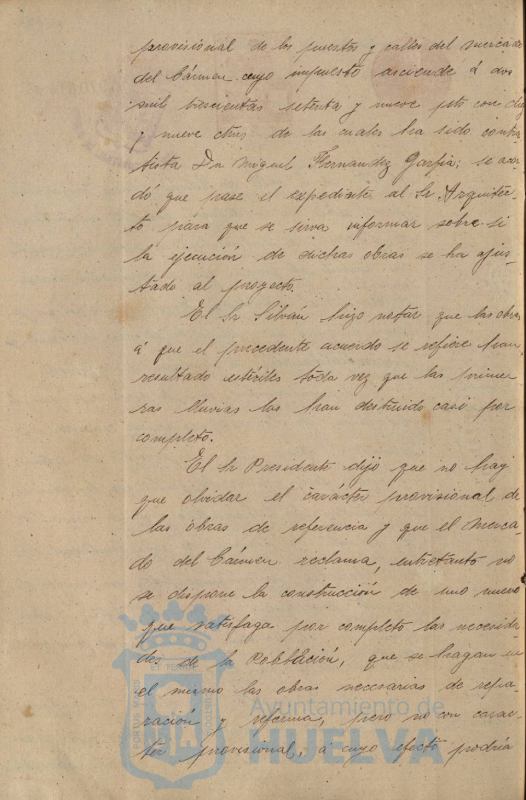 provisional de los puestos y calles del mercado
del Cármen cuyo impuesto asciende á dos
mil trescientas setenta y nueve pts con diez
y nueve ctms de las cuales ha sido contra
tista Dn Miguel Fernandez Garfia; se acor
dó que pase el expediente al Sr Arquitec
to para que se sirva informar sobre si
la ejecución de dichas obras se ha ajus
tado al proyecto.
El Sr Silván hizo notar que las obras
á que el precedente acuerdo se refiere han
resultado estériles toda vez que las prime
ras lluvias las han destruido casi por
completo.
El Sr Presidente dijo que no hay
que olvidar el carácter provisional de
las obras de referencia y que el merca
do del Cármen reclama, entretanto no
se dispone la construcción de uno nuevo
que satisfaga por completo las necesida
des de la Población, que se hagan en
el mismo las obras necesarias de repa
ración y reforma, pero no con carac
ter provisional, á cuyo efecto podría
Ayuntamiento de
HUELVA